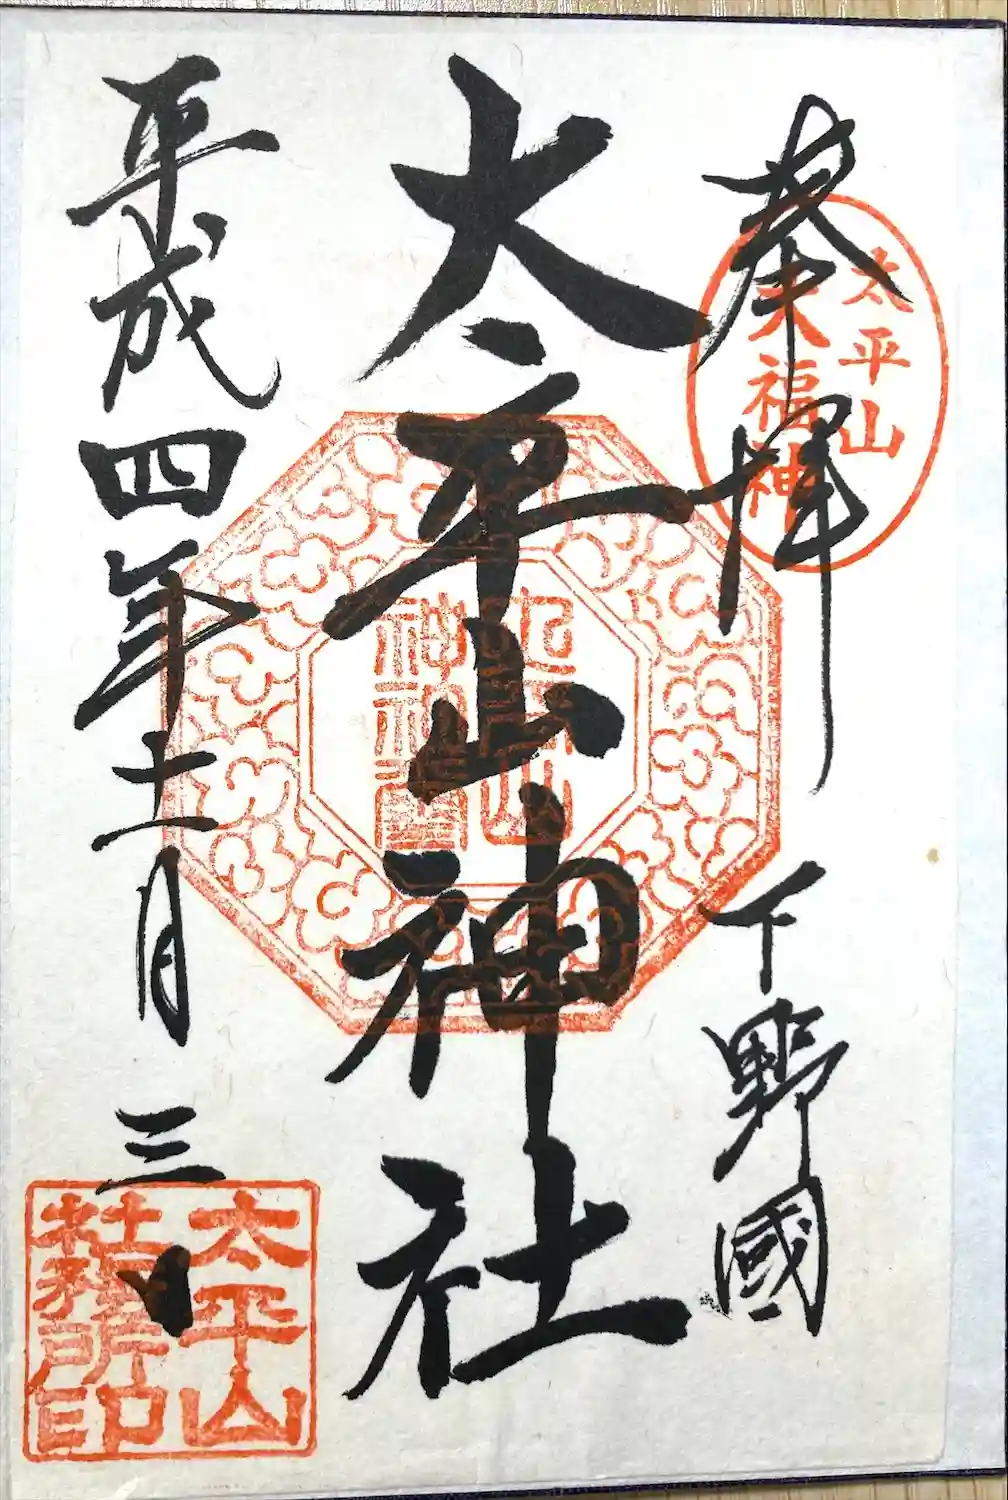 奉拝
下野國
太平山神社
平成四年十一月三日
太平山
大福神
太平山
神社璽
太平山
社務所印